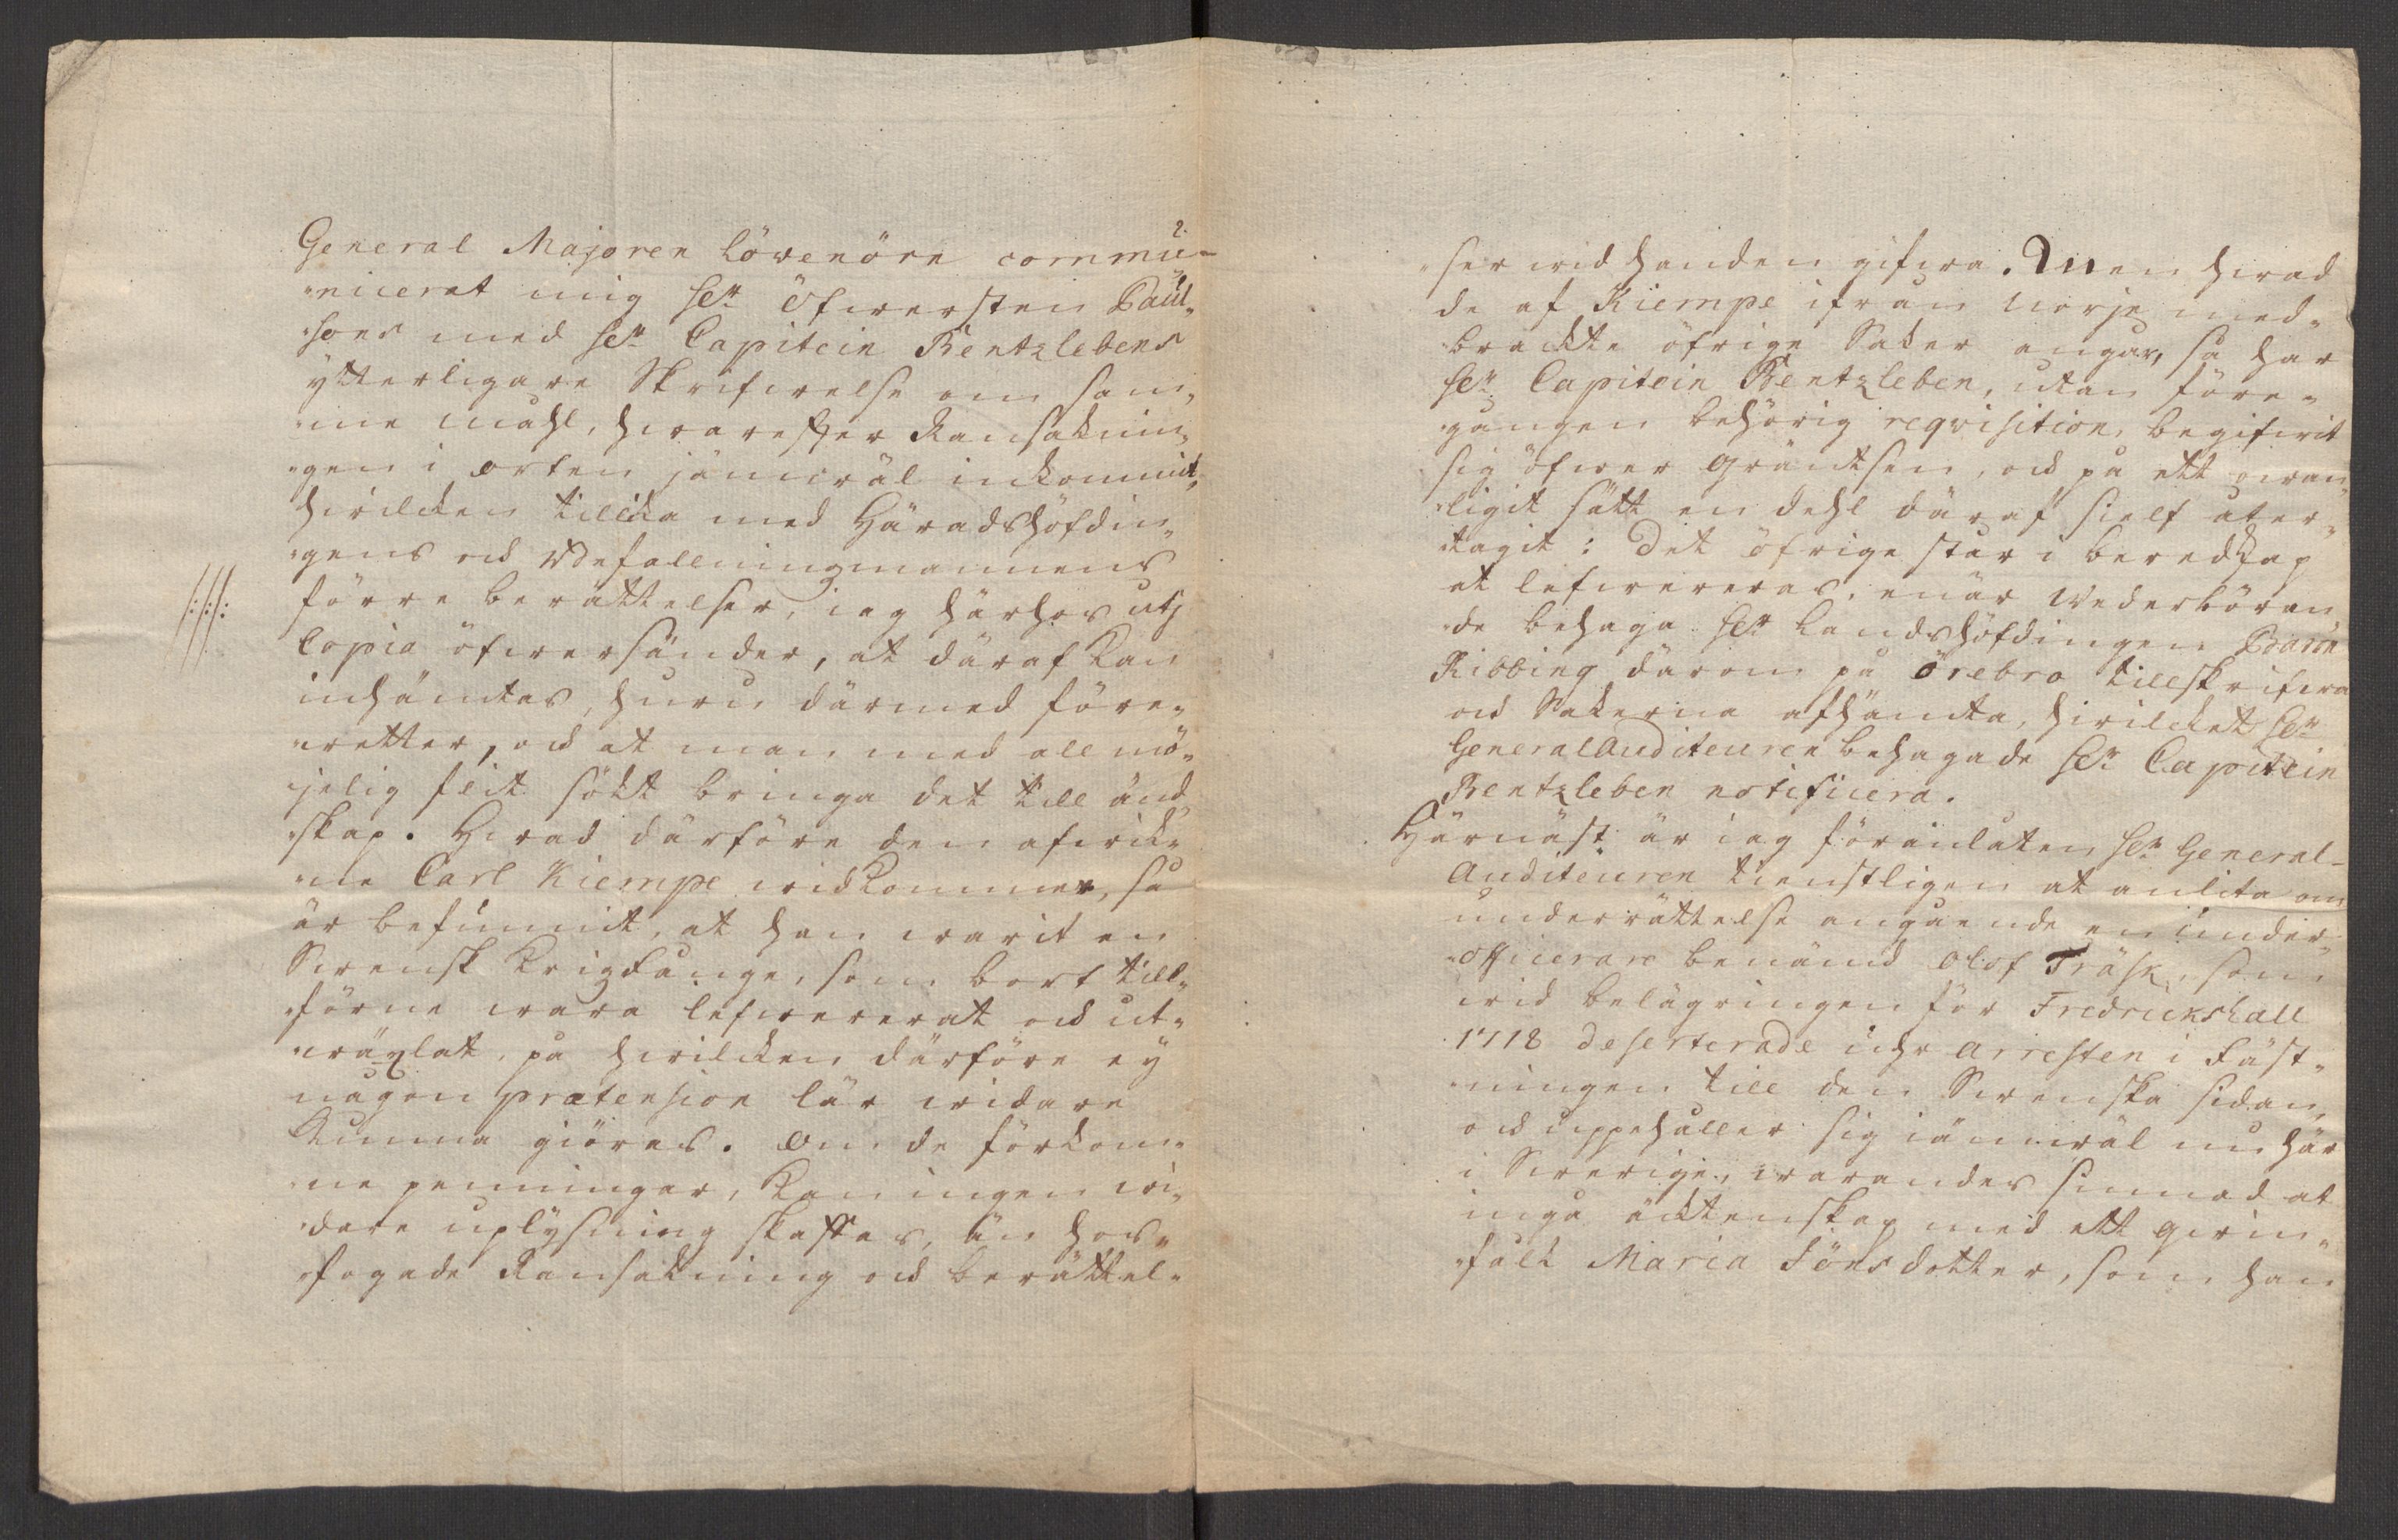 2.
General Majoren Lövenörn commu-
nicerat mig Hr Öfwersten Paul-
sens med Hr Capitein Rentzlebens
ytterligare Skrifwelse om sam-
me måhl, hwarefter Ransaknin-
gen i orten jämwäl inkommit,
hwilcken tillika med Häradshöfdin-
gens och Befallningsmannens
förre berättelser, iag härhos uti
Copia öfwersänder, at däraf kan
inhämtas, huru därmed före-
wetter, och at man med all mö-
jelig flit sökt bringa det till änd-
skap. Hwad därföre den afwik-
ne Carl Kiempe widkommer, så
är befunnit, at han warit en
Swensk Krigsfånge, som bort till-
förne wara lefwererat och ut-
wäxlat, på hwilcken därföre ey
någon prætension lär widare
kunna giöras. Om de förkom-
ne penningar, kan ingen wi-
dare uplysning skaffas, än hos-
fogade Ransakning och berättel-
ser wid handen gifwa. Men hwad
de af Kiempe ifrån Norje med-
brackte öfrige Saker angår, så har
Hr Capitein Rentzleben, utan före-
gången behörig reqvisition, begifwit
sig öfwer Gräntsen, och på ett owan-
ligit sätt en dehl däraf sielf åter-
tagit: Det öfrige står i beredskap
at lefwereras, enär wederböran-
de behaga Hr Landshöfdingen Baron
Ribbing därom på Örebro tillskrifwa
och Sakerna afhämta, hwilcket Hr
General Auditeuren behagade Hr Capitein
Rentzleben notificera.
Härnäst är iag föranlåten Hr General-
Auditeuren tienstligen at anlita om
underrättelse angående en under-
officerare benämd Olof Träsk, som
wid belägringen för Fredrickshall
1718 deserterade uhr arresten i Fäst-
ningen till den Swenska sidan,
och uppehåller sig iämwäl nu här
i Swerige, warandes sinnad at
ingå äcktenskap med ett qwin-
folk Maria Jönsdotter, som han